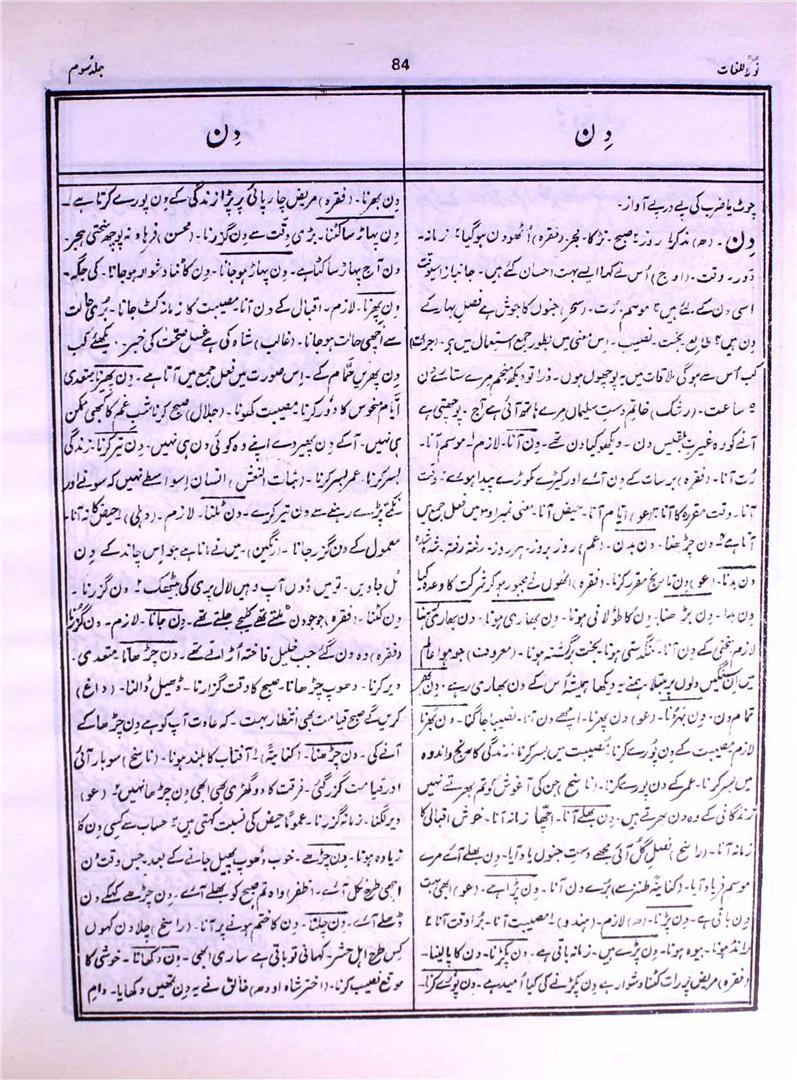 نور اللغات
84
جلد سوم
دِن
دِن
چوٹ یا ضرب کی پے در پے آواز۔
دِن۔ (ھ) مذکر! روز ٢ صبح۔ تڑکا۔ فجر۔ (فقرہ) اُٹھو دن ہوگیا ٣ زمانہ۔
دَور۔ وقت۔ (اوج) اُس نے کہا ایسے بہت احسان کئے ہیں۔ جانباز اسیوقت
اسی دن کے لئے ہیں ٤ موسم۔ رُت۔ (سحر) جنوں کا جوش ہے فصلِ بہار کے
دِن ہیں ٥ طالع۔ بخت۔ نصیب۔ اِس معنی میں بطور جمع استعمال میں ہے۔ (جرأت)
کب اُس سے ہوگی ملاقات میں یہ پوچھوں ہوں۔ ذرا تو دیکھ منجم مرے ستارے دن
٦ ساعت۔ (رشک) خاتمِ دستِ سلیماں مرے ہاتھ آئی ہے آج۔ پوچھتی ہے
آنے کو وہ غیرتِ بلقیس دن۔ دیکھو کیا دن تھے۔ دِن آنا۔ لازم۔ ١ موسم آنا۔
رُت آنا۔ (فقرہ) برسات کے دِن آئے اور کیڑے مکوڑے پیدا ہوئے ٢ وقت
آنا۔ وقت مقررہ کا آنا ٣ (عو) ایام آنا۔ حیض آنا۔ معنی نمبر ا و ٣ میں فعل جمع میں
آتا ہے ٤ دن چڑھنا۔ دن بدن۔ (عم) روز بروز۔ ہر روز۔ رفتہ رفتہ۔ شدہ شدہ
دِن بدنا۔ (عو) دن تاریخ مقرر کرنا۔ (فقرہ) انھوں نے مجبور ہو کر شرکت کا وعدہ کیا
دِن بدا۔ دِن بڑھنا۔ دِن کا طولانی ہونا۔ دِن بھاری ہونا۔ دِن بھاری رہنا
لازم سختی کے دِن آنا۔ تنگدستی ہونا۔ بخت برگشتہ ہونا۔ (معروف) جو ہوا عالم
میں اِن سنگیں دلوں پر مبتلا۔ ہمنے یہ دیکھا ہمیشہ اُس کے دن بھاری رہے۔ دِن بھر
تمام دِن۔ دِن بہُرنا۔ (عو) دِن پھرنا۔ اچھے دن آنا۔ نصیبا جاگنا۔ دِن بھرنا
لازم۔ مصیبت کے دِن پورے کرنا ٢ مصیبت میں بسر کرنا۔ زندگی کا رنج و اندوہ
میں بسر کرنا۔ عمر کے دن پورے کرنا۔ (ناسخ) جن کی آغوش کو تم بھرتے نہیں
زندگانی کے وہ دن بھرتے ہیں۔ دِن بھلے آنا۔ اچھا زمانہ آنا۔ خوش اقبالی کا
زمانہ آنا۔ (راسخ) فصلِ گل آئی مجھے دستِ جنوں یاد آیا۔ دِن بھلے آئے مرے
موسمِ فریاد آیا۔ (کنایۃً طنز سے) بُرے دِن آنا۔ دِن پڑا ہے۔ (عو) ابھی بہت
دِن باقی ہے۔ دِن پڑنا۔ (ھ) لازم۔ (ہندو) ١ مصیبت آنا۔ بُرا وقت آنا ٢
رانڈ ہونا۔ بیوہ ہونا۔ دِن پڑے ہیں۔ زمانہ باقی ہے۔ دِن پکڑنا۔ دن کا پالینا۔
(فقرہ) مریض پر رات کٹنا دشوار ہے دِن پکڑنے کی کیا اُمید ہے۔ دِن پورے کرنا۔
دِن بھرنا۔ (فقرہ) مریض چارپائی پر پڑا زندگی کے دِن پورے کرتا ہے۔
دِن پہاڑ سا کٹنا۔ بڑی دقّت سے دِن گزرنا۔ (محسن) فرہاد نہ پوچھ سختیِ ہجر
دن آج پہاڑ سا کٹا ہے۔ دِن پہاڑ ہو جانا۔ دِن کا کٹنا دشوار ہو جانا۔ کی جگہ۔
دِن پھرنا۔ لازم۔ اقبال کے دِن آنا۔ مصیبت کا زمانہ کٹ جانا۔ بُری حالت
سے اچھی حالت ہو جانا۔ (غالب) شاہ کی ہے غسلِ صحت کی خبر۔ دیکھئے کب
دِن پھریں حمّام کے۔ اِس صورت میں فعل جمع میں آتا ہے۔ دِن پھیرنا متعدی
ایّامِ نحوس کا دُور کرنا۔ مصیبت کھونا۔ (جلال) صبح کرنا شبِ غم کا کبھی ممکن
ہی نہیں۔ آ کے دِن پھیر دے اپنے وہ کوئی دن ہی نہیں۔ دِن تیر کرنا۔ زندگی
بسر کرنا۔ عمر بسر کرنا۔ (بنات النعش) انسان اِسواسطے نہیں کہ سوئے اور
نکمے پڑے رہنے سے دن تیر کرے۔ دن ٹلنا۔ لازم۔ (دہلی) ١ حیض کا نہ آنا۔
معمول کے دن گزر جانا۔ (رنگین)۔ میں نے مانا ہے ہو اِس چاند کے دِن
ٹل جاویں۔ تو میں دُوں آپ وہیں لال پری کی بیٹھک ٢ دِن گزرنا۔
دِن کٹنا۔ (فقرہ) جو جو دن ٹلتے تھے کلیجے جلتے تھے۔ دِن جانا۔ لازم۔ دن گزرنا
(فقرہ) وہ دن گئے جب خلیل فاختہ اُڑاتے تھے۔ دِن چڑھانا۔ متعدی۔
دیر کرنا۔ دھوپ چڑھانا۔ صبح کا وقت گزارنا۔ ڈھیل ڈالنا۔ (داغ)
کریں گے صبح قیامت بھی انتظار بہت۔ کہ عادت آپ کو ہے دِن چڑھا کے
آنے کی۔ دِن چڑھنا۔ (کنایۃً) ١ آفتاب کا بلند ہونا۔ (ناسخ) سوبار آئی
اور قیامت گزر گئی۔ فرقت کا دو گھڑی بھی ابھی دِن چڑھا نہیں ٢ (عو)
دیر لگنا۔ زمانہ گزرنا۔ عموماً حیض کی نسبت کہتی ہیں ٣ حساب سے کسی دِن کا
زیادہ ہونا۔ دِن چڑھے۔ خوب دُھوپ پھیل جانے کے بعد۔ جس وقت دن
اچھی طرح نکل آئے۔ (ظفر) واہ تم صبح کو بھلے آئے۔ دِن چڑھے کہکے دن
ڈھلے آئے۔ دِن چلنا۔ دن کا ختم ہونے پر آنا۔ (راسخ) جلادن کہوں
کس طرح اہلِ حشر۔ کہانی تو باقی ہے ساری ابھی۔ دِن دکھانا۔ خوشی کا
موقع نصیب کرنا۔ (اختر شاہ اودھ) خالق نے یہ دِن تمھیں دکھایا۔ دامِ